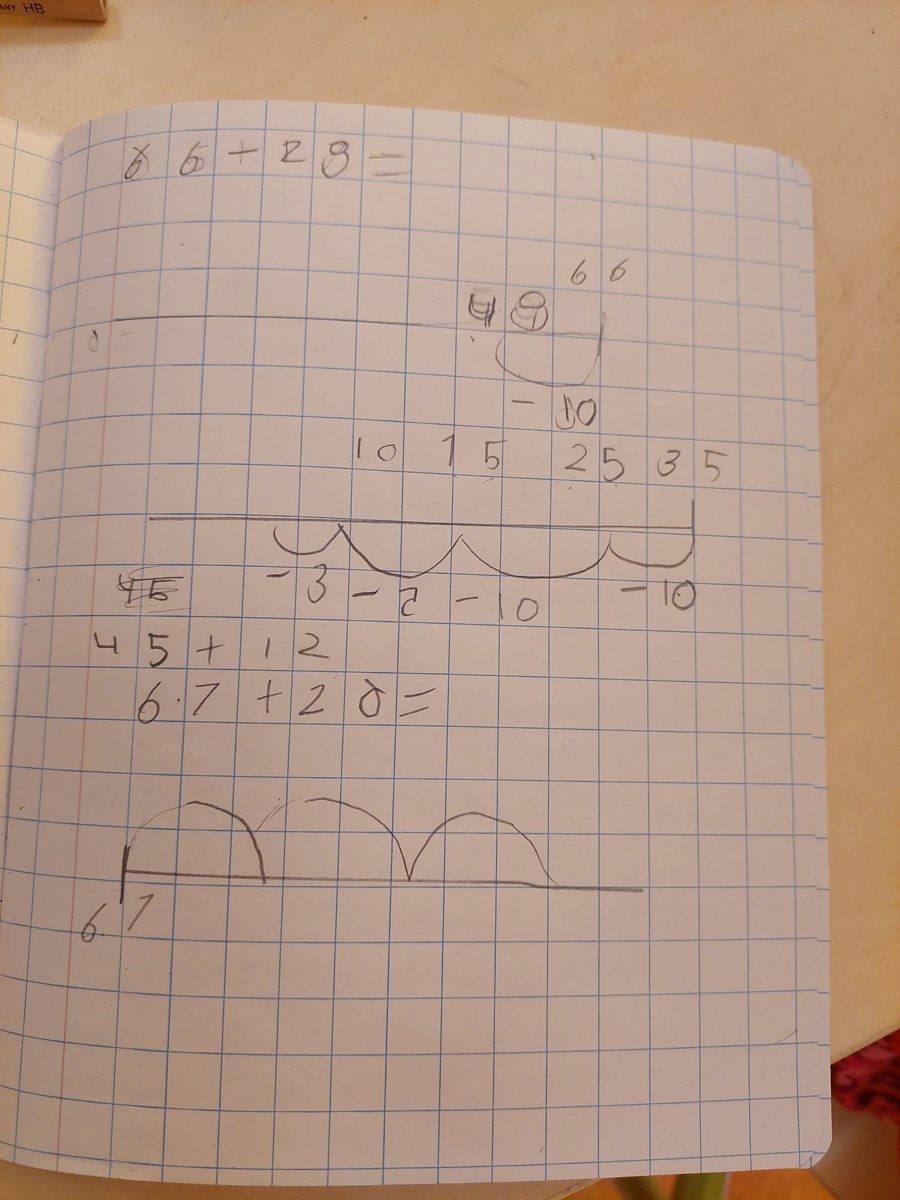 ANY HB
66+28=
66
49
0
-10
10 15 25 35
-3 -2 -10 -10
45+12
6.7+28=
6.7